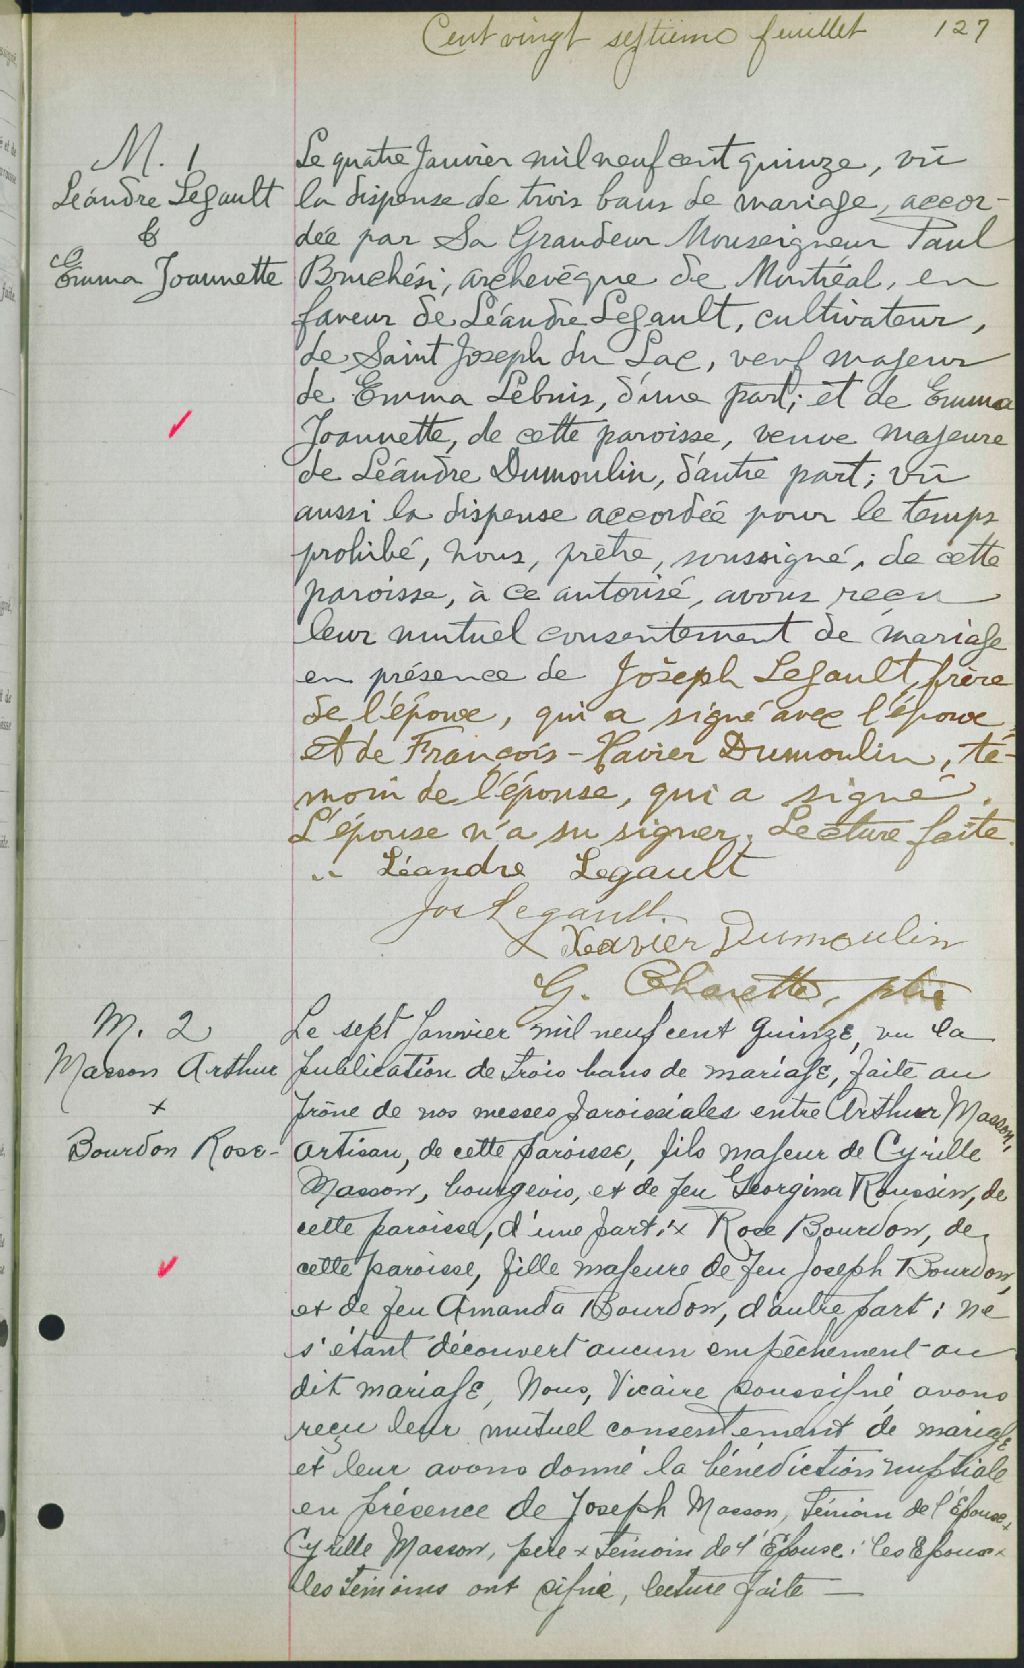 Cent vingt septième feuillet 127
M. 1
Léandre Legault
&
Emma Joannette
Le quatre Janvier mil neuf cent quinze, vû
la dispense de trois bans de mariage, accor-
dée par Sa Grandeur Monseigneur Paul
Bruchési, archevêque de Montréal, en
faveur de Léandre Legault, cultivateur,
de Saint Joseph du Lac, veuf majeur
de Emma Lebuis, d'une part; et de Emma
Joannette, de cette paroisse, veuve majeure
de Léandre Dumoulin, d'autre part; vû
aussi la dispense accordée pour le temps
prohibé, nous, prêtre, soussigné, de cette
paroisse, à ce autorisé, avons reçu
leur mutuel consentement de mariage
en présence de Joseph Legault, frère
de l'époux, qui a signé avec l'époux,
et de François-Xavier Dumoulin, té-
moin de l'épouse, qui a signé.
L'épouse n'a su signer. Lecture faite.
Léandre Legault
Jos Legault
Xavier Dumoulin
G. Charette, ptre
M. 2
Masson Arthur
+
Bourdon Rose-
Le sept Janvier mil neuf cent quinze, vu la
publication de trois bans de mariage, faite au
prône de nos messes paroissiales entre Arthur Masson,
artisan, de cette paroisse, fils majeur de Cyrille
Masson, bourgeois, et de feu Georgina Roussin, de
cette paroisse, d'une part; + Rose Bourdon, de
cette paroisse, fille majeure de feu Joseph Bourdon,
et de feu Amanda Bourdon, d'autre part; ne
s'étant découvert aucun empêchement au
dit mariage, Nous, Vicaire soussigné avons
reçu leur mutuel consentement de mariage
et leur avons donné la bénédiction nuptiale
en présence de Joseph Masson, témoin de l'Epouse +
Cyrille Masson, père + témoin de l'Epouse: les Epoux +
les témoins ont signé, lecture faite —